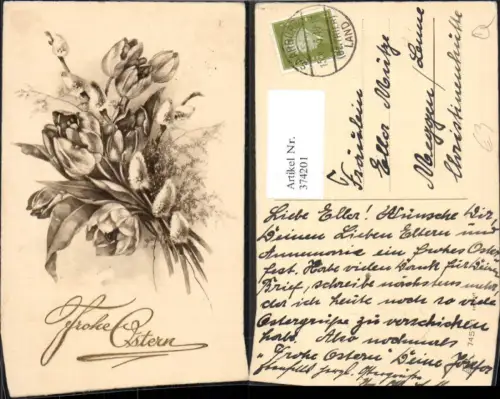 Frohe Ostern
Artikel Nr.
374201
Fräulein
Eller Mütze
Meggen/Lenne
Christinenhütte
Liebe Eller! Wünsche Dir,
Deinen Lieben Eltern und
Annemarie ein frohes Oster
fest. Habe vielen Dank für Deinen
Brief, schreibe nächstens mehr,
da ich heute noch so viele
Ostergrüße zu verschicken
habe. Also nochmals
„Frohe Ostern" Deine